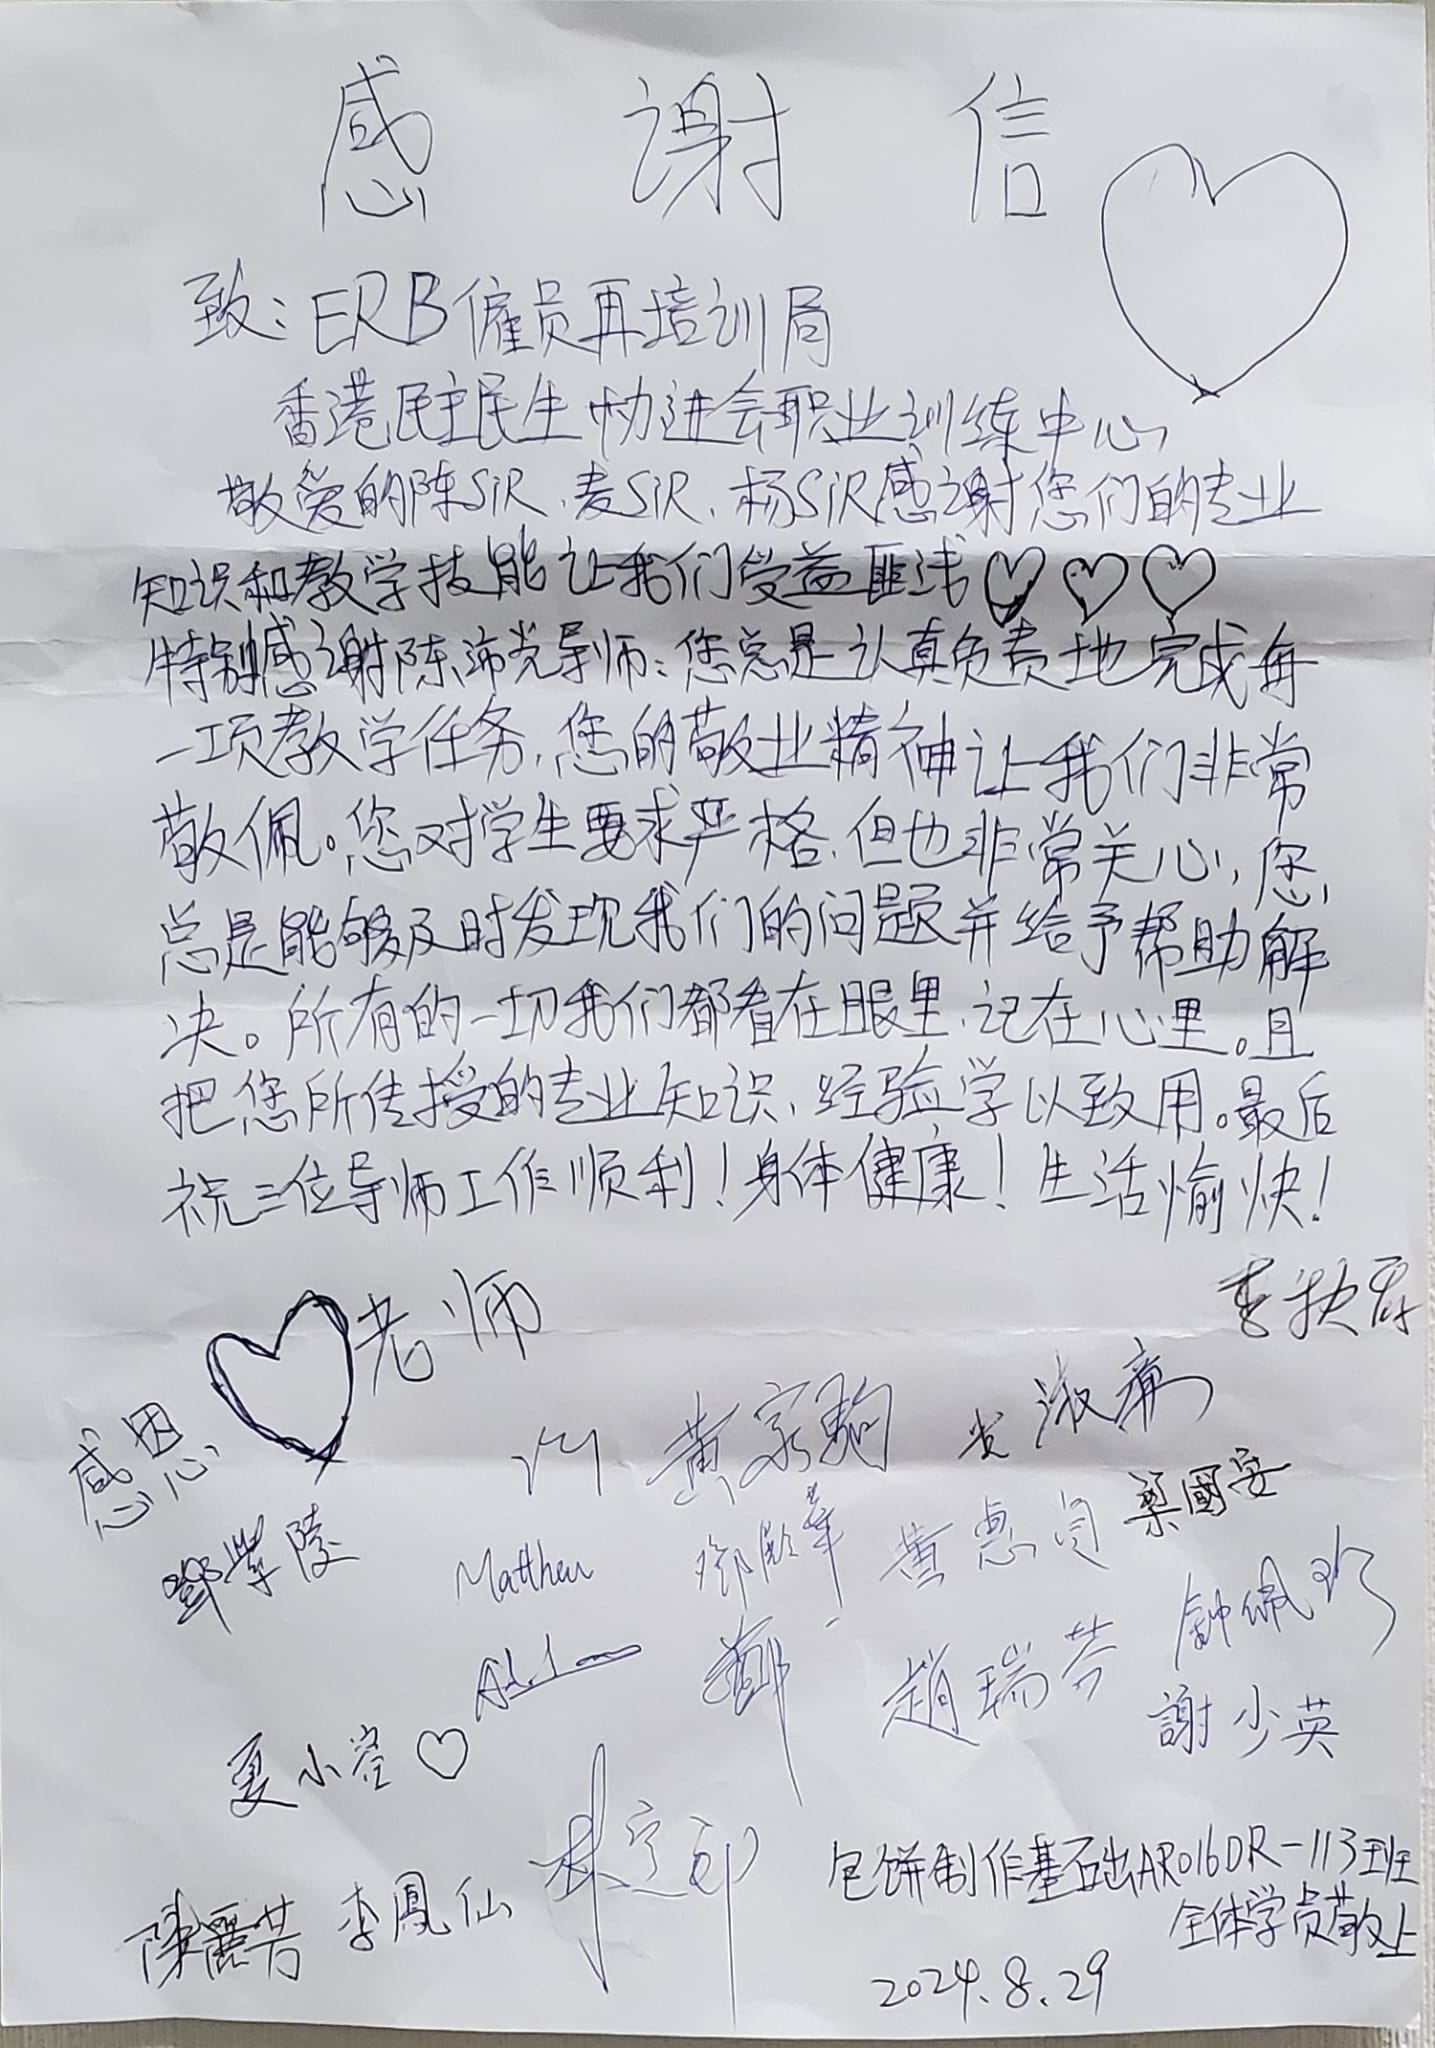 感谢信
致：ERB僱员再培训局
香港民主民生协进会职业训练中心
敬爱的陈SiR、麦SiR、杨SiR感谢您们的专业
知识和教学技能让我们受益匪浅
特别感谢陈沛光导师：您总是认真负责地完成每
一项教学任务，您的敬业精神让我们非常
敬佩。您对学生要求严格，但也非常关心，您
总是能够及时发现我们的问题并给予帮助解
决。所有的一切我们都看在眼里，记在心里。且
把您所传授的专业知识、经验学以致用。最后
祝三位导师工作顺利！身体健康！生活愉快！
感恩 老师
黄家驹
梁國安
鄧學陵
Matthew
黄惠
鍾佩
趙瑞芬
謝少英
夏小
陳麗芳
李鳳仙
包饼制作基础AR016DR-113班
全体学员敬上
2024.8.29